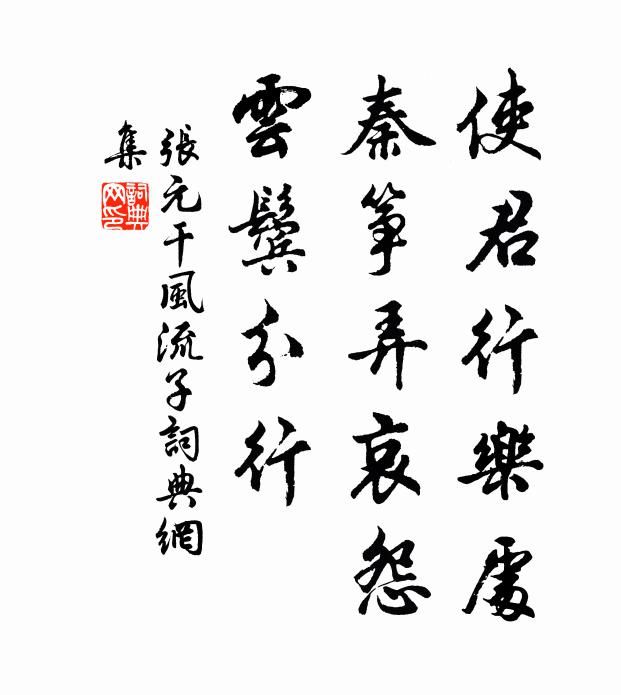 使君行樂處
秦筝弄哀怨
雲鬢分行
張元干風流子詞典網
集
詞典
网印